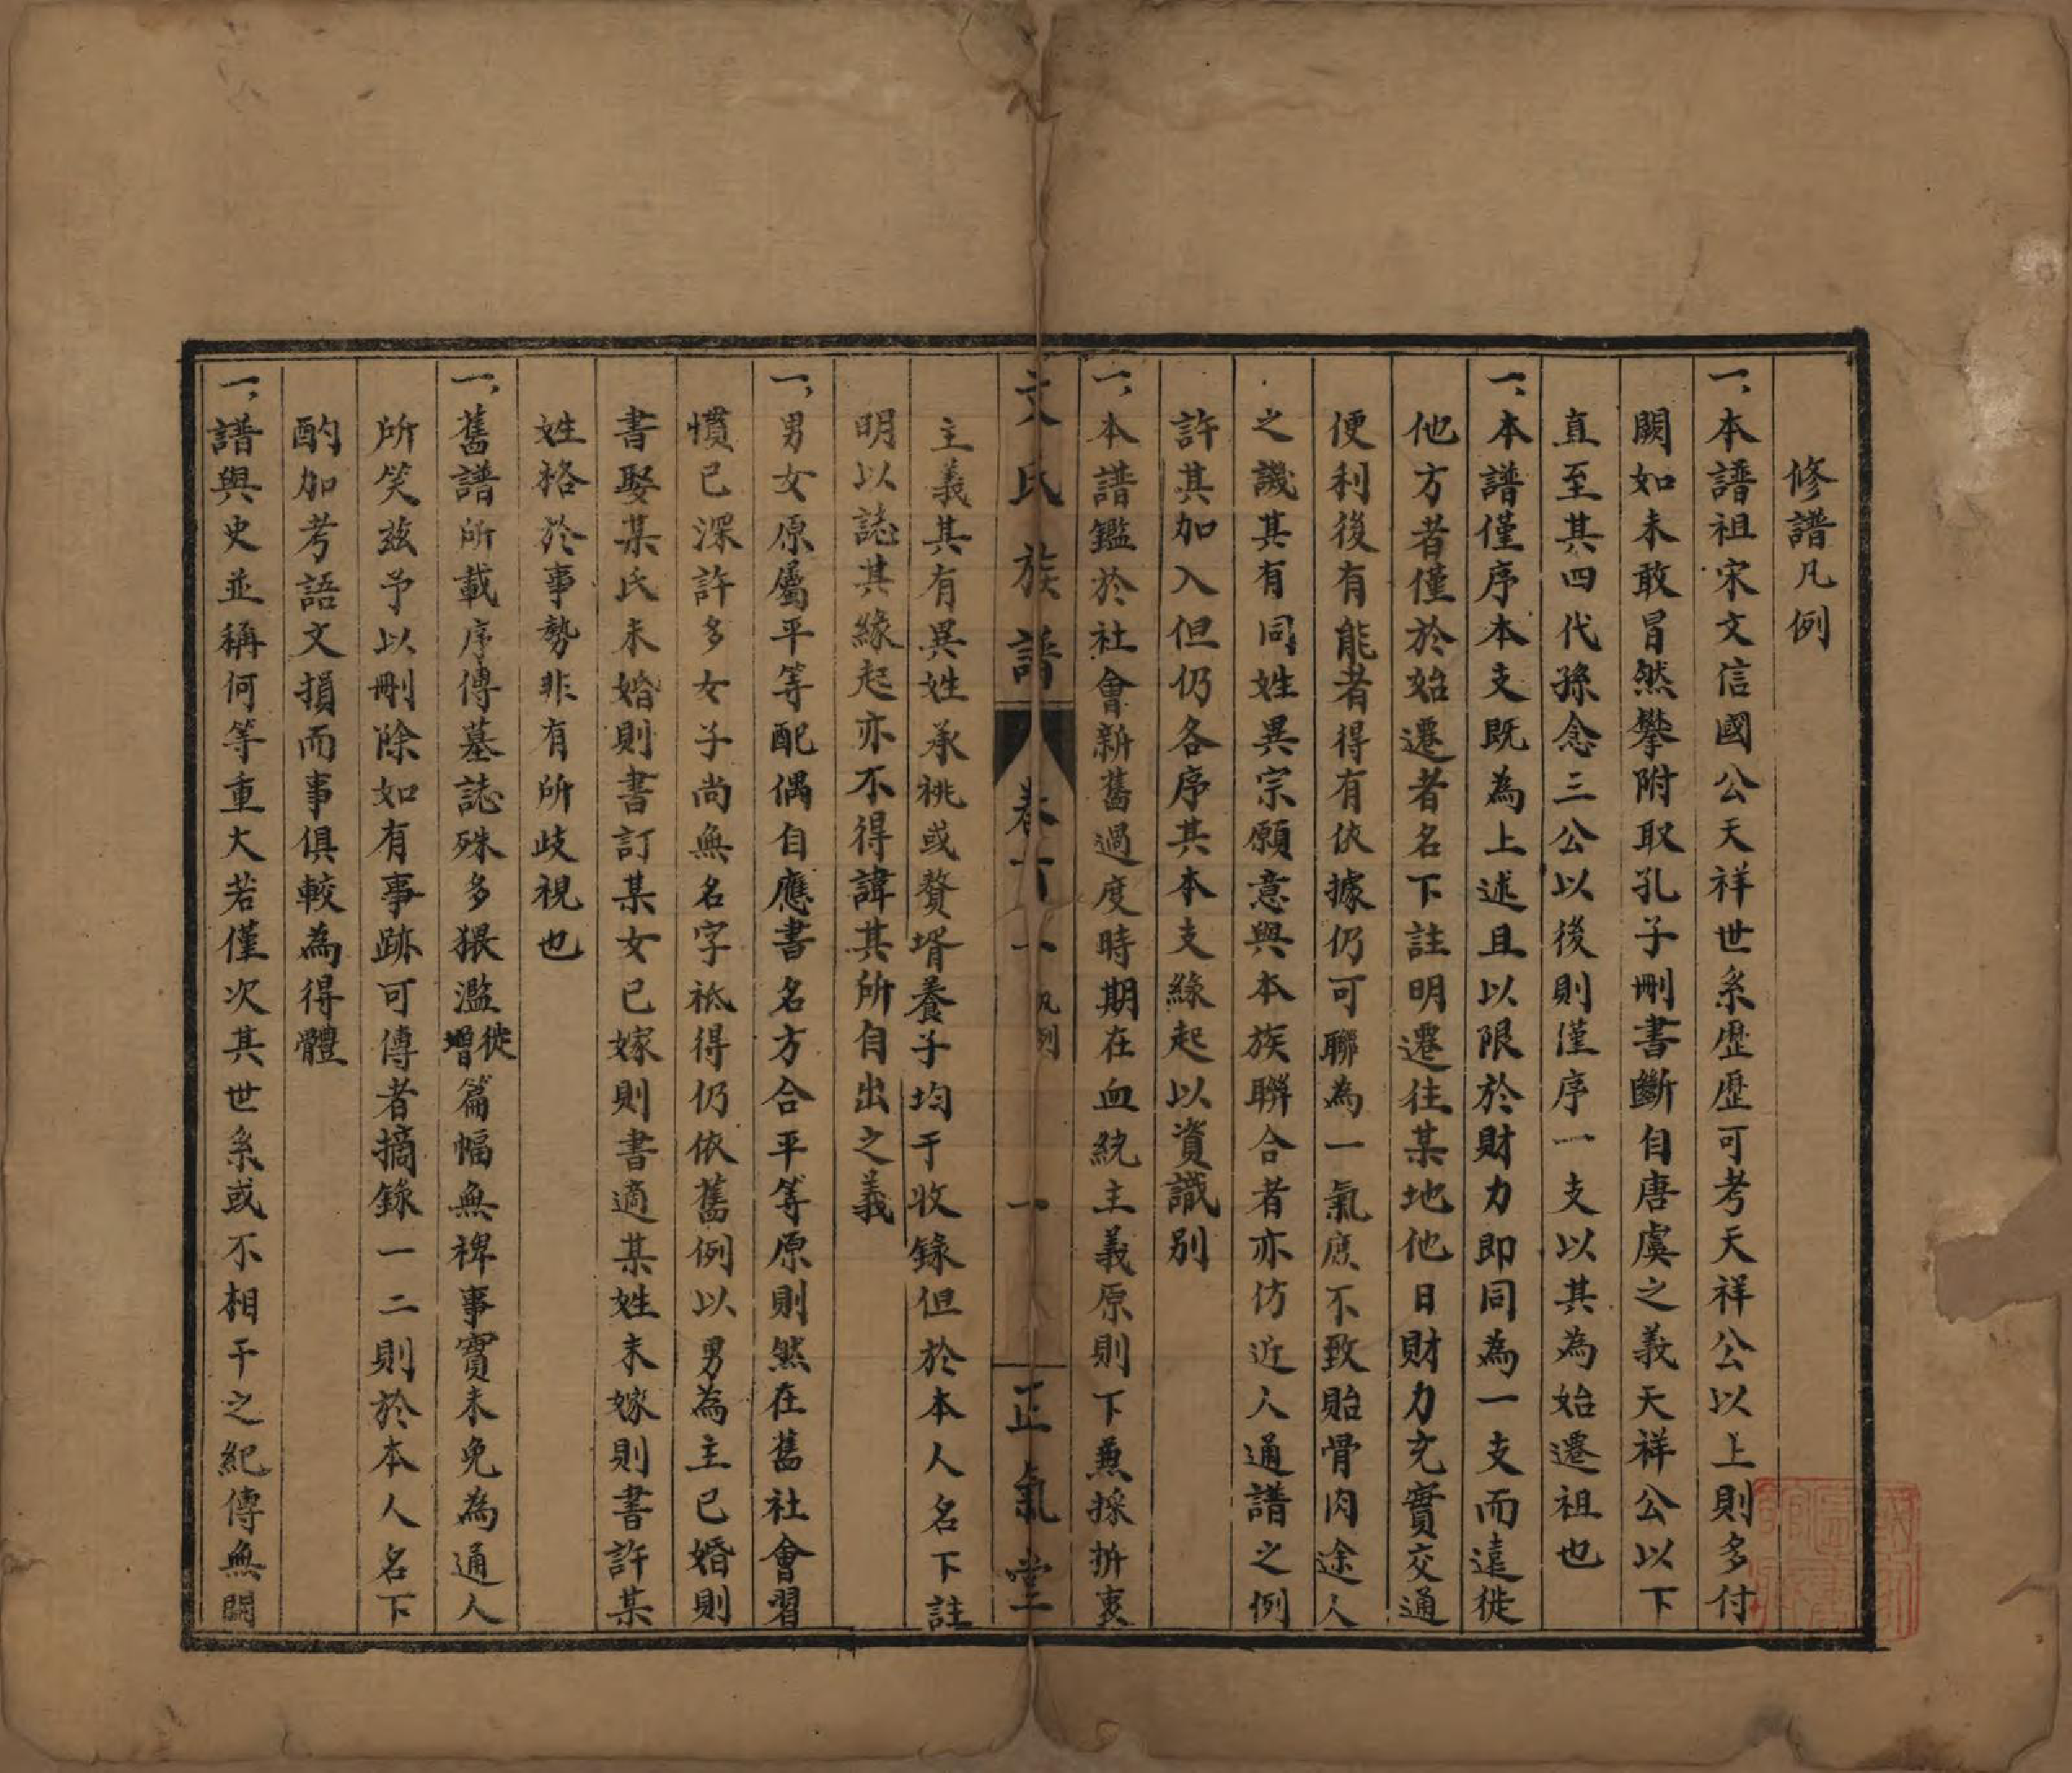 修譜凡例
一、本譜祖宋文信國公天祥世系歷歷可考天祥公以上則多付
闕如未敢冒然攀附取孔子刪書斷自唐虞之義天祥公以下
直至其四代孫念三公以後則僅序一支以其為始遷祖也
一、本譜僅序本支既為上述且以限於財力即同為一支而遠徙
他方者僅於始遷者名下註明遷往某地他日財力充實交通
便利後有能者得有依據仍可聯為一氣庶不致貽骨肉途人
之譏其有同姓異宗願意與本族聯合者亦仿近人通譜之例
許其加入但仍各序其本支緣起以資識別
一、本譜鑑於社會新舊過度時期在血統主義原則下兼採折衷
文氏族譜
卷首一
凡例
一
正氣堂
主義其有異姓承祧或贅壻養子均于收錄但於本人名下註
明以誌其緣起亦不得諱其所自出之義
一、男女原屬平等配偶自應書名方合平等原則然在舊社會習
慣已深許多女子尚無名字祇得仍依舊例以男為主已婚則
書娶某氏未婚則書訂某女已嫁則書適某姓未嫁則書許某
姓格於事勢非有所歧視也
一、舊譜所載序傳墓誌殊多猥濫徙增篇幅無裨事實未免為通人
所笑茲予以刪除如有事跡可傳者摘錄一二則於本人名下
酌加考語文損而事俱較為得體
一、譜與史並稱何等重大若僅次其世系或不相干之紀傳無關